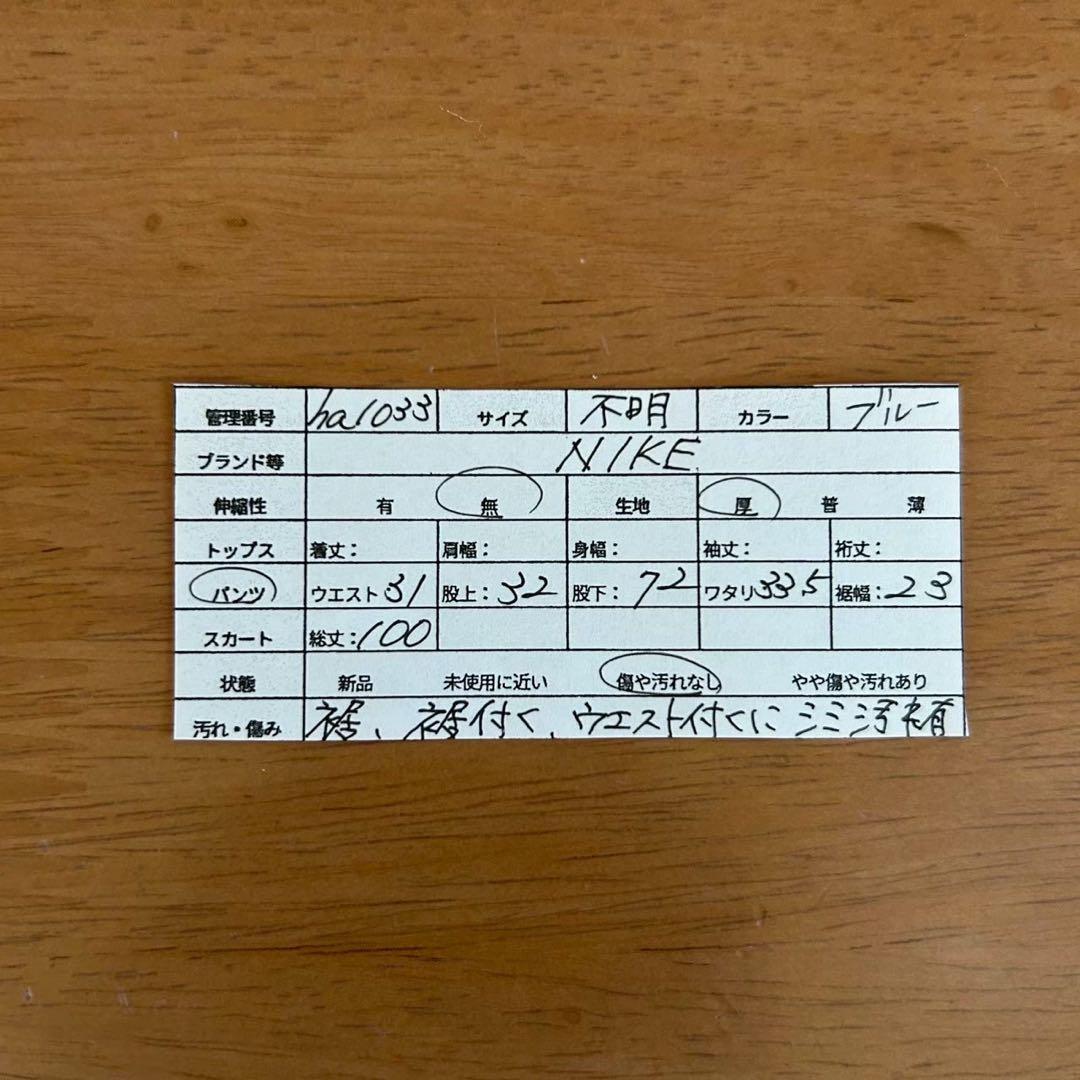 管理番号 ha1033 サイズ 不明 カラー ブルー
ブランド等 NIKE
伸縮性 有 無 生地 厚 普 薄
トップス 着丈: 肩幅: 身幅: 袖丈: 裄丈:
パンツ ウエスト 31 股上: 32 股下: 72 ワタリ 33.5 裾幅: 23
スカート 総丈: 100
状態 新品 未使用に近い 傷や汚れなし やや傷や汚れあり
汚れ・傷み 裾、裾付く、ウエスト付くにシミ汚れ有